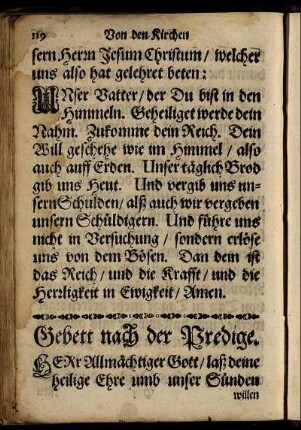 119 Von den Kirchen
sern Herrn Jesum Christum / welcher
uns also hat gelehret beten:
UNser Vatter / der Du bist in den
Himmeln. Geheiliget werde dein
Nahm. Zukomme dein Reich. Dein
Will geschehe wie im Himmel / also
auch auff Erden. Unser täglich Brod
gib uns Heut. Und vergib uns un-
sern Schulden / alß auch wir vergeben
unsern Schüldigern. Und führe uns
nicht in Versuchung / sondern erlöse
uns von dem Bösen. Dan dein ist
das Reich / und die Krafft / und die
Herrligkeit in Ewigkeit / Amen.
Gebett nach der Predige.
HERr Allmächtiger Gott / laß deine
heilige Ehre umb unser Sünden
willen